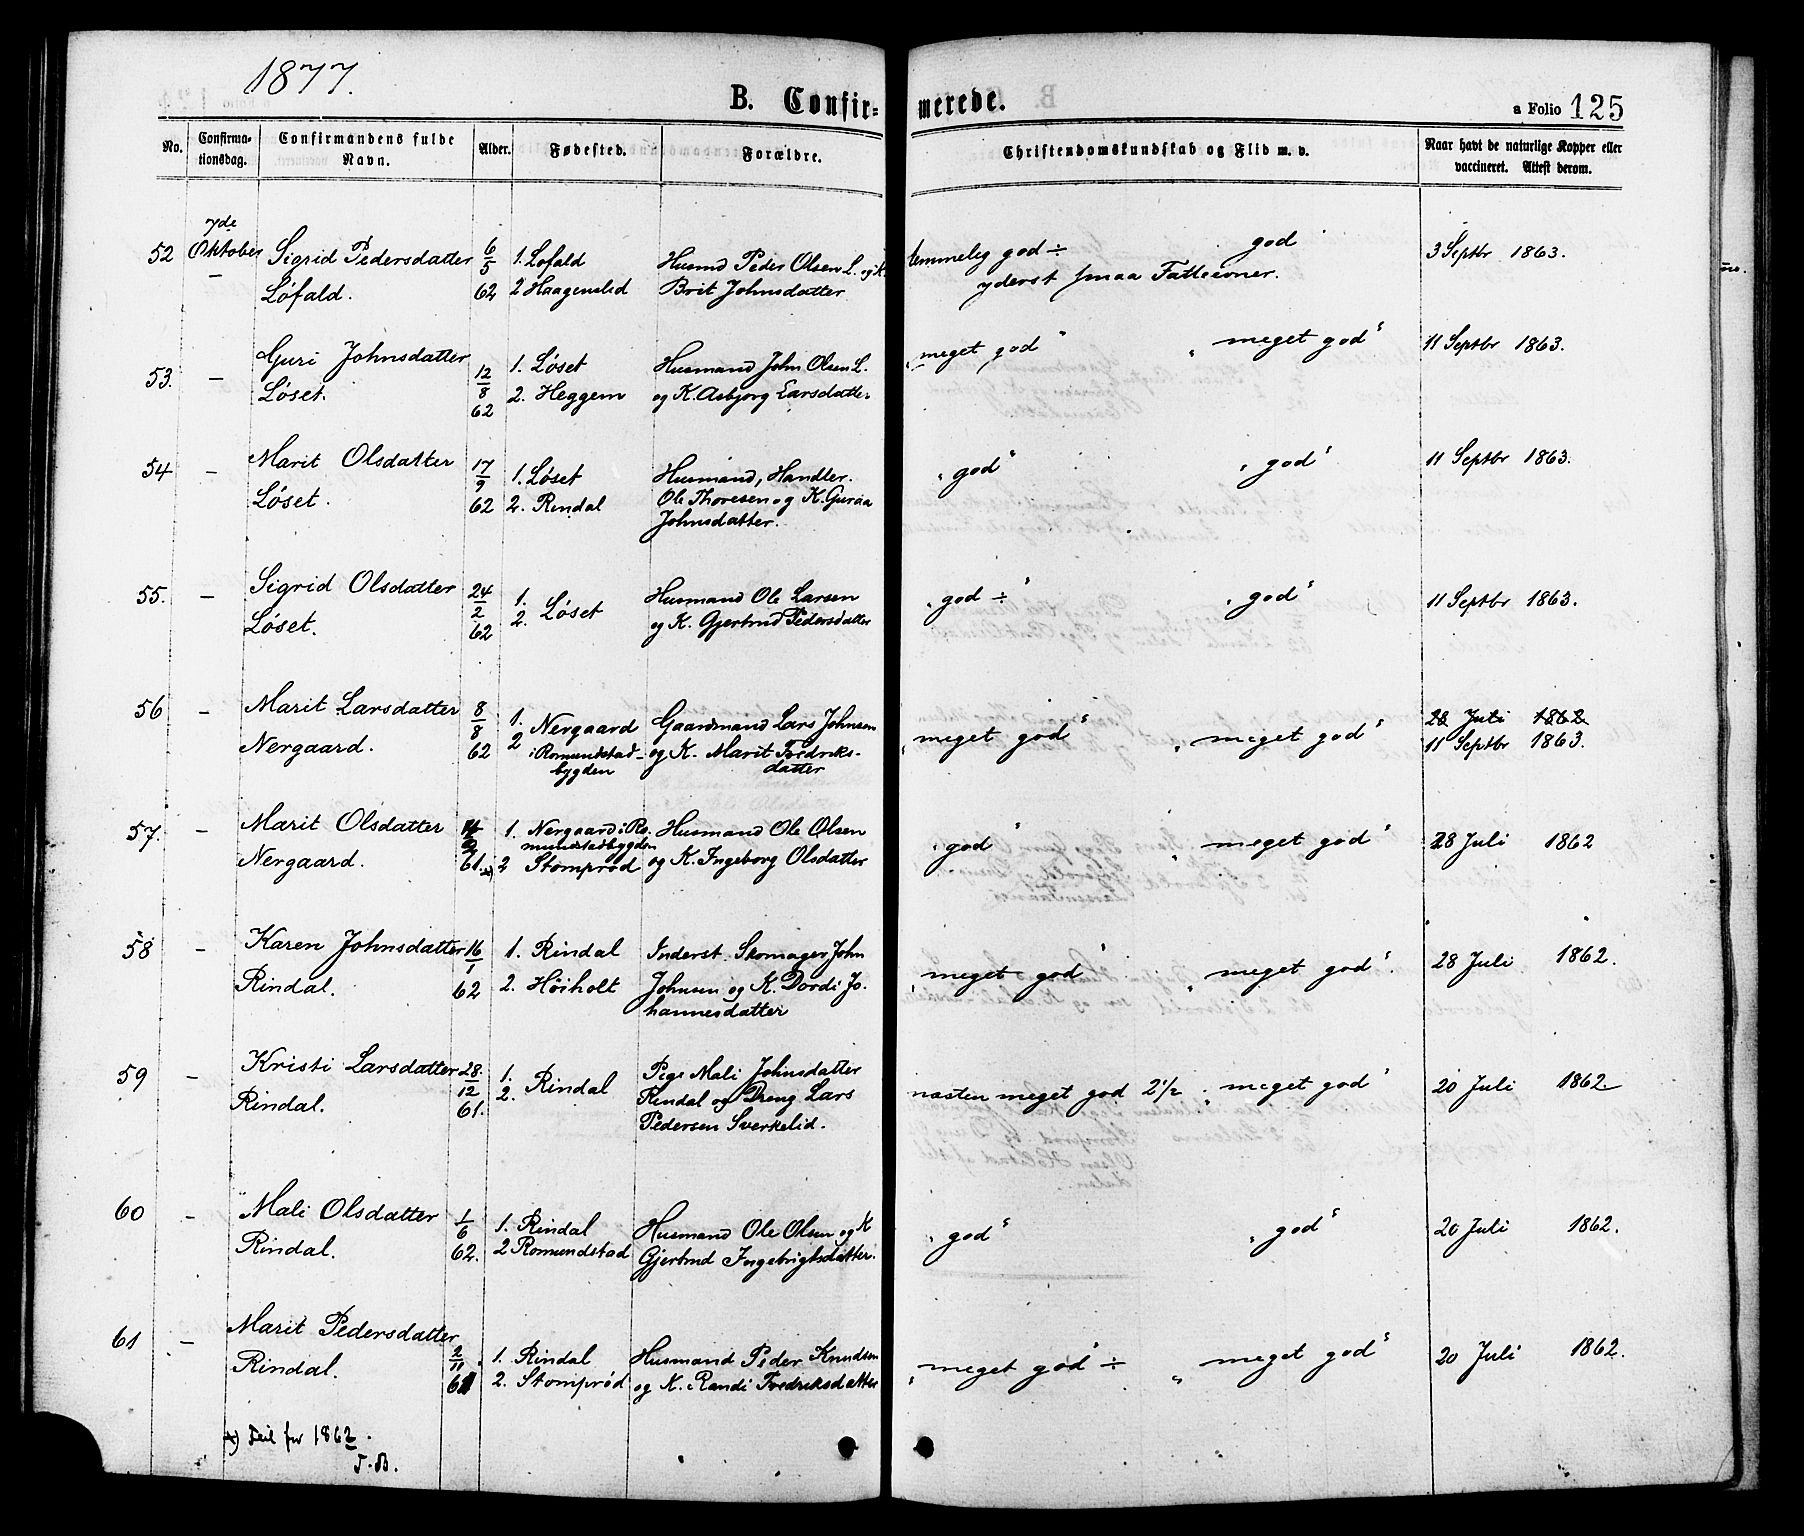 1877.
B. Confirmerede.
a Folio 125
No. Confirmationsdag. Confirmandens fulde Navn. Alder. Fødested. Forældre. Christendomskundskab og Flid m. v. Naar havt de naturlige Kopper eller vaccineret. Attest derom.
7de
52 Oktober Sigrid Pedersdatter 6/5 1. Lofald Husmd Peder Olsen L. og K. temmelig god ÷ god 3 Septbr 1863.
– Löfald. 62 2 Haagenslid Brit Johnsdatter yderst smaa
53. – Guri Johnsdatter 12/8 1. Löset Husmand John Olsen L. „meget god“ „meget god“ 11 Septbr 1863.
Löset. 62 2. Heggem og K. Asbjorg Larsdatter
54 – Marit Olsdatter 17/9 1. Løset Husmand, Handler. „god“ „god“ 11 Septbr 1863.
Løset. 62 2. Rindal Ole Thoresen og K. Guraa
Johnsdatter.
55. – Sigrid Olsdatter 24/2 1. Løset Husmand Ole Larsen „god ÷“ „god“ 11 Septbr 1863.
Løset. 62 2. og K. Gjertrud Pedersdatter
56 – Marit Larsdatter 8/8 1. Nergaard Gaardmand Lars Johnsen „meget god“ „meget god“ 28 Juli 1862
Nergaard. 62 2 i Romundstad- og K. Marit Fredriks- 11 Septbr 1863.
bygden datter
57. – Marit Olsdatter 1. Nergaard i Ro- Husmand Ole Olsen „god“ „meget god“ 28 Juli 1862
mundstadbygden
Nergaard. 61. x) 2 Stomprød og K. Ingeborg Olsdatter
58 – Karen Johnsdatter 16/1 1. Rindal Inderst. Skomager John „meget god“ „meget god“. 28 Juli 1862.
Rindal. 62 2. Høiholt Johnsen og K. Dordi Jo-
hannesdatter
59 – Kristi Larsdatter 28/12 1. Rindal Pige Mali Johnsdatter næsten meget god 2½ „meget god“ 20 Juli 1862
Rindal. 61. 2. Rindal og Dreng Lars
Pedersen Sverkelid.
60 – Mali Olsdatter 1/6 1. Rindal Husmand Ole Olsen og K „god“ „god“ 20 Juli 1862.
Rindal. 62. 2 Romundstad Gjertrud Ingebrigtsdatter.
61 – Marit Pedersdatter 2/11 1. Rindal Husmand Peder Knudsen „meget god“ ÷ „meget god“ 20 Juli 1862.
Rindal. 61 2. Stomprød og K. Randi Fredriksdatter
x) Feil for 1862.